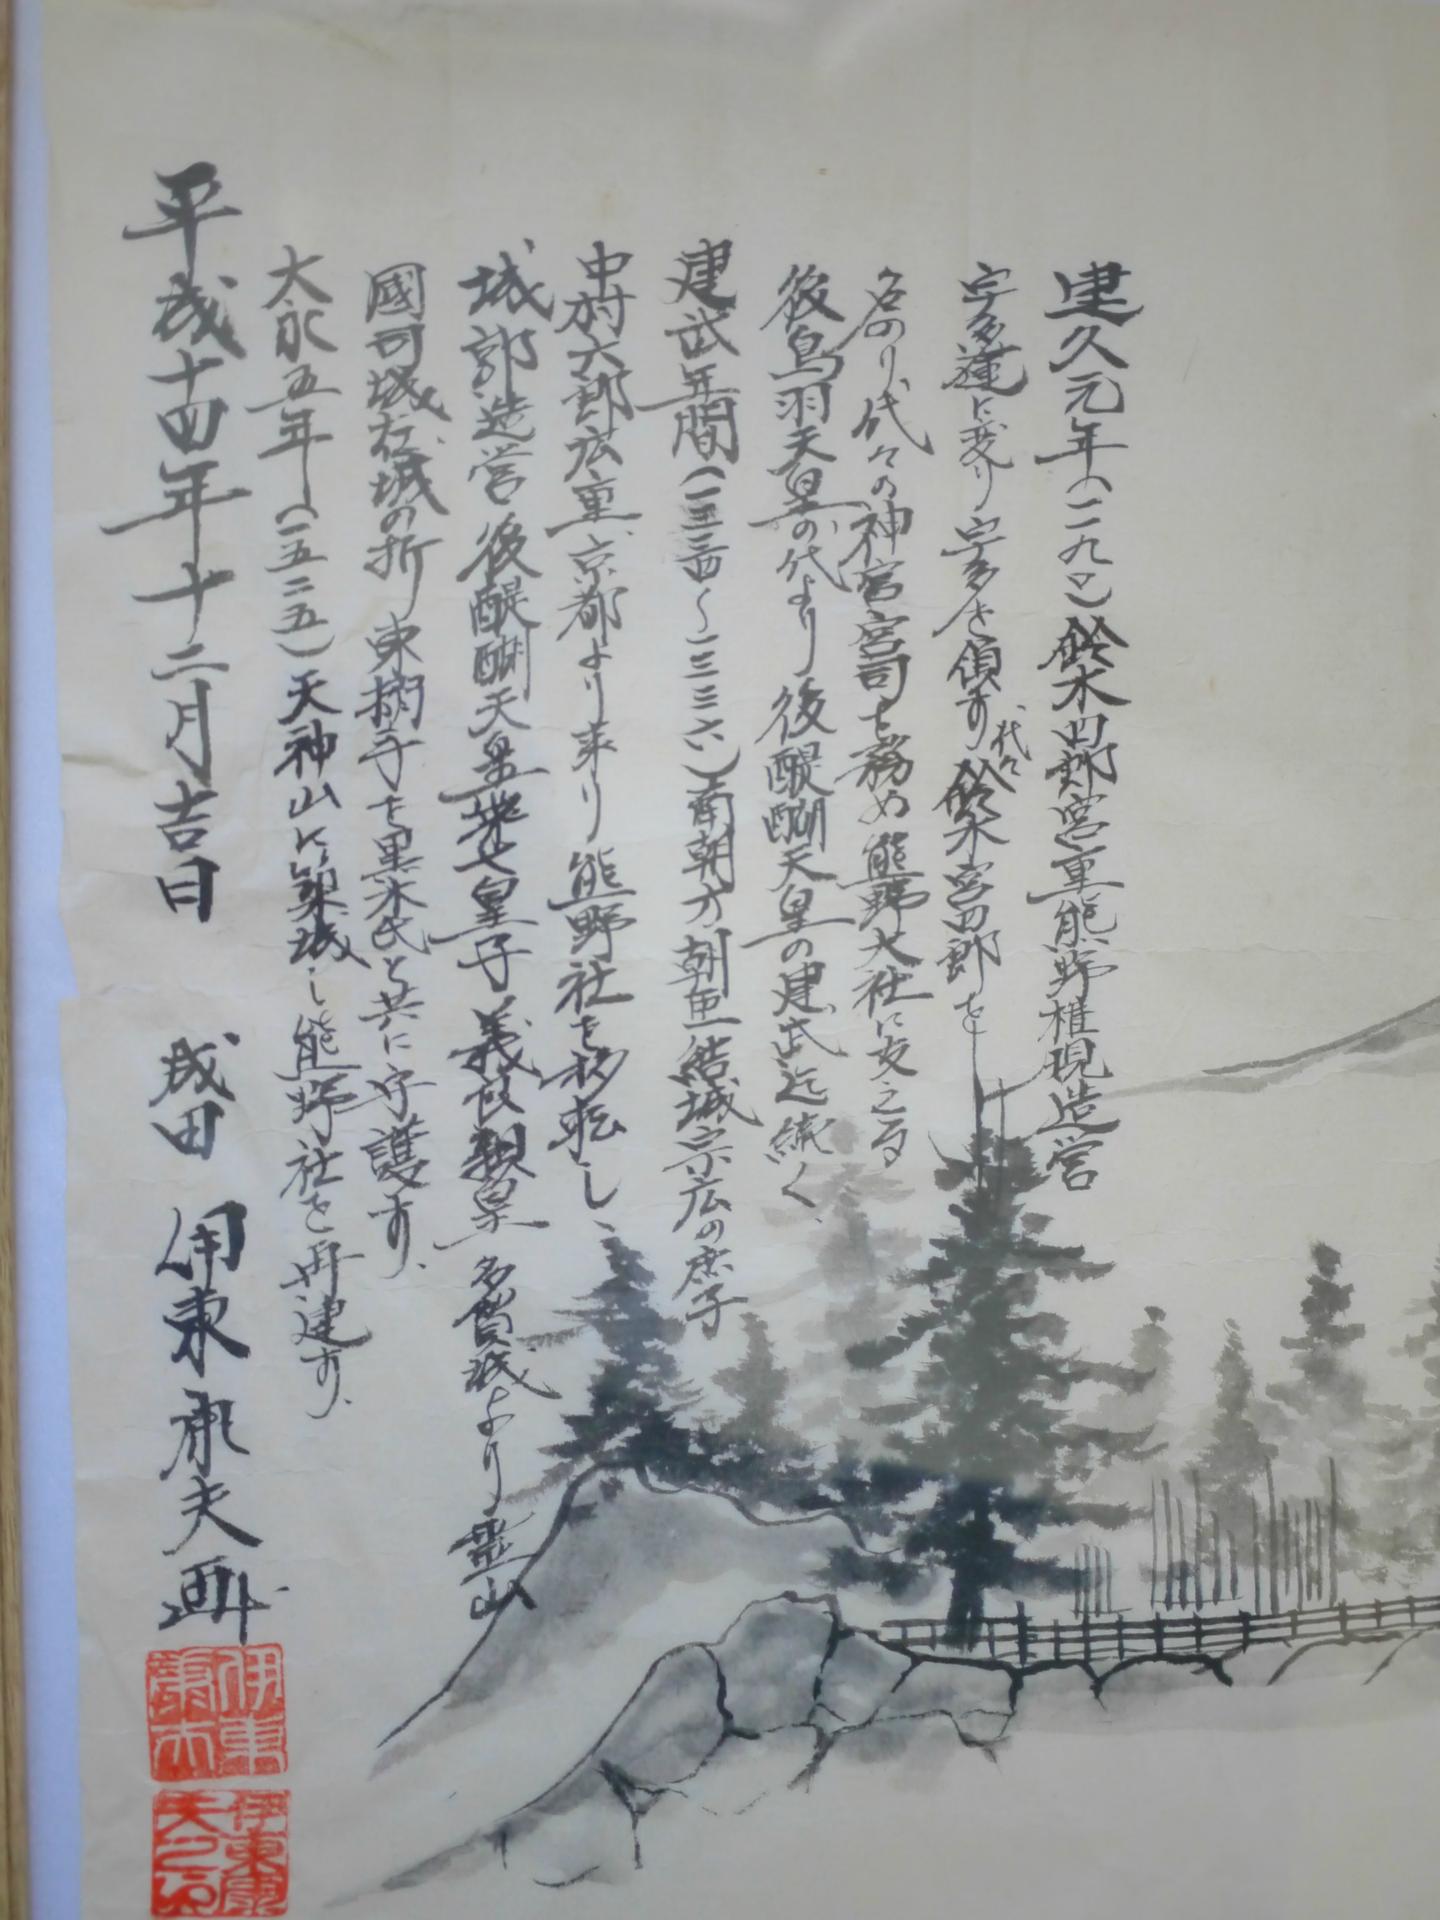 建久元年(一一九〇)鈴木四郎宮重熊野権現造営
宇多蓮に変り宇多を領す代々鈴木宮四郎を
名のり代々の神宮宮司を務め熊野大社に支える
後鳥羽天皇の代より後醍醐天皇の建武迄続く、
建武年間(一三三四~一三三六)南朝方朝臣結城宗広の庶子
中村六郎広重京都より来り熊野社を移転し、
城郭造営後醍醐天皇第七皇子義良親皇多賀城より霊山
國司城在城の折東掬子を黒木氏と共に守護す、
大永五年(一五二五)天神山に築城し熊野社を再建す、
平成十四年十二月吉日 成田 伊東康夫画
伊東
伊東康